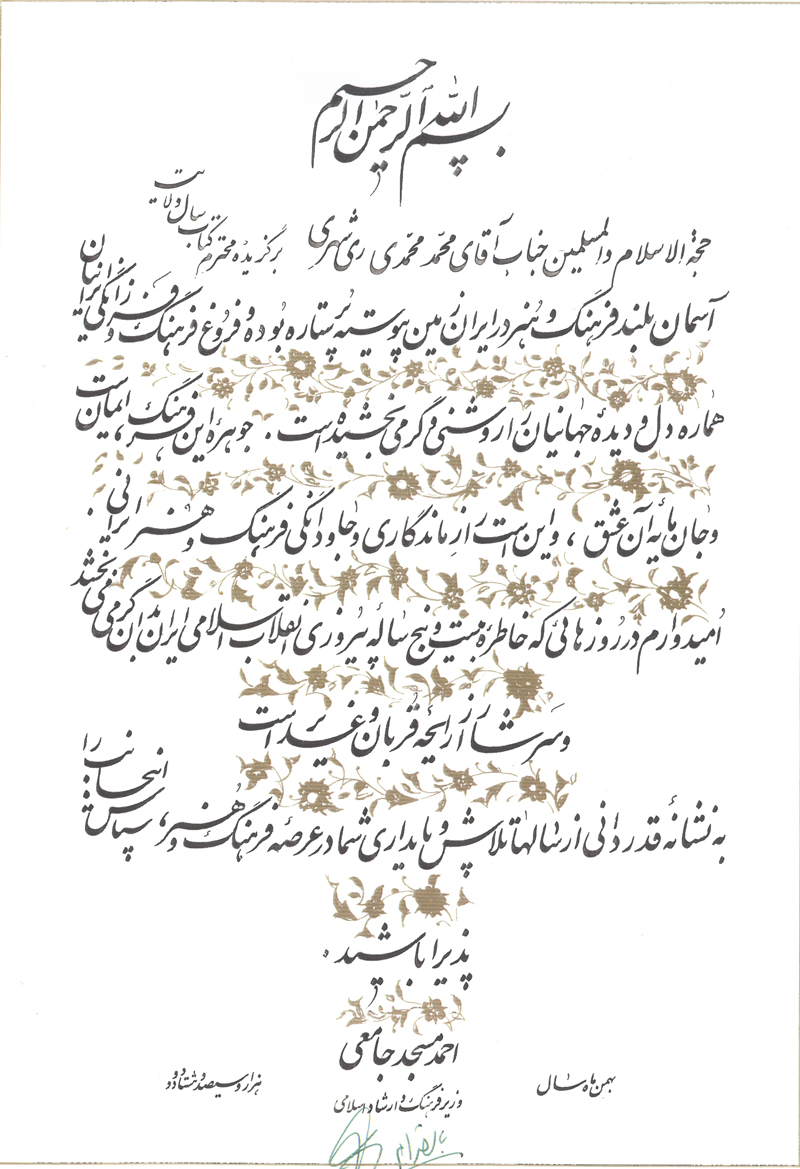 بسم الله الرحمن الرحیم
حجة الاسلام والمسلمین جناب آقای محمد محمدی ری شهری برگزیده محترم کتاب سال ولایت
آسمان بلند فرهنگ و هنر در ایران زمین پیوسته پُر ستاره بوده و فروغ فرهنگ و فرزانگی ایرانیان
هماره دل و دیدهٔ جهانیان را روشنی و گرمی بخشیده است. جوهرهٔ این فرهنگ، ایمان است
و جان مایهٔ آن عشق، و این است راز ماندگاری و جاودانگی فرهنگ و هنر ایرانی.
اُمیدوارم در روزهائی که خاطرهٔ بیست و پنج سالهٔ پیروزی انقلاب اسلامی ایران بدان گرمی می‌بخشد
و سرشار از رایحهٔ قربان و غدیر است
به نشانهٔ قدردانی از سالها تلاش و پایداری شما در عرصهٔ فرهنگ و هنر، سپاس اینجانب را
پذیرا باشید.
احمد مسجد جامعی
وزیر فرهنگ و ارشاد اسلامی
بهمن ماه سال هزار و سیصد و هشتاد و دو
با احترام